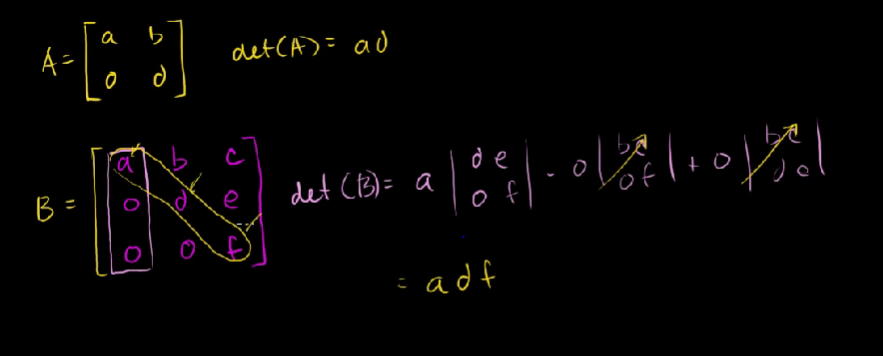 A = [ a b
0 d ] det(A) = ad
B = [ a b c
0 d e
0 0 f ] det(B) = a | d e
0 f | - 0 | b c
0 f | + 0 | b c
d e |
= adf